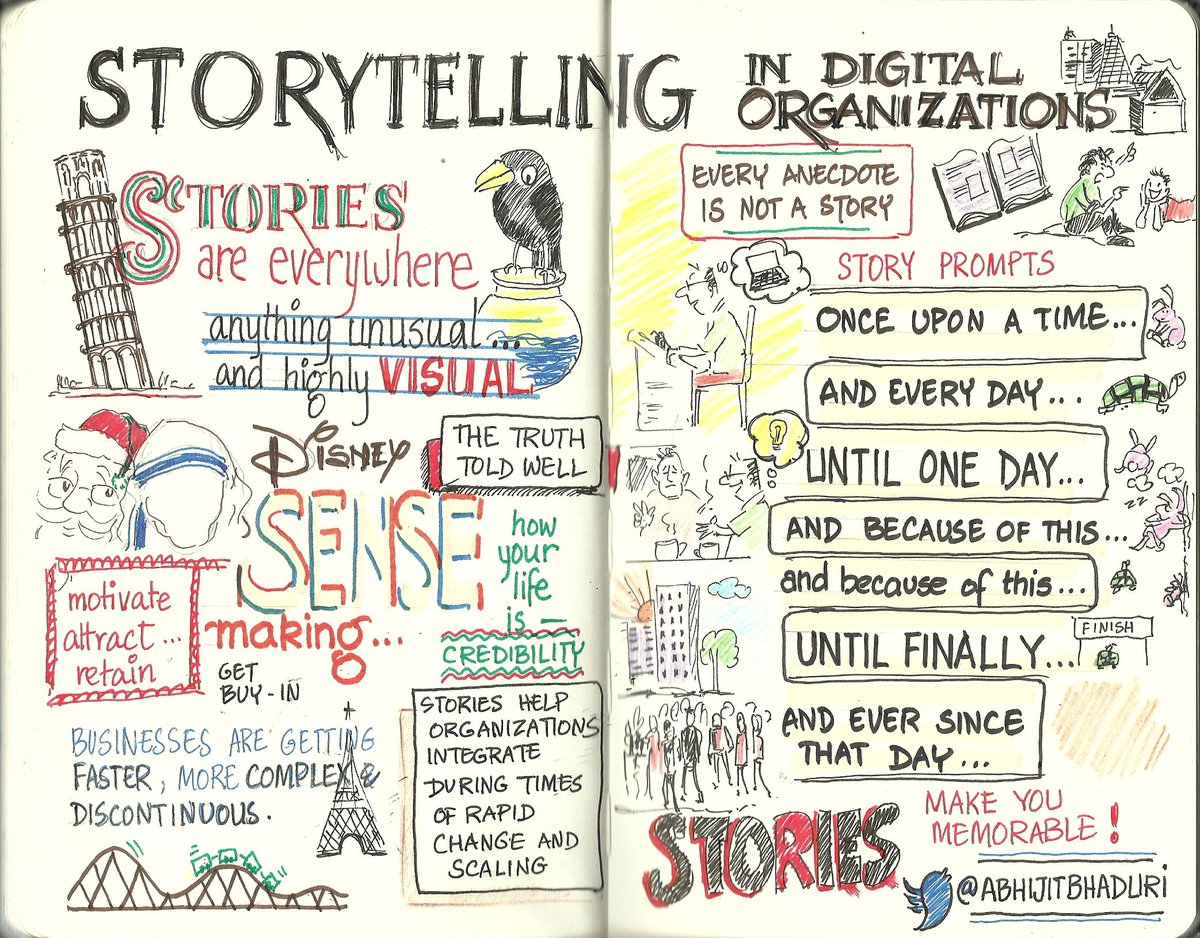 STORYTELLING
IN DIGITAL
ORGANIZATIONS
STORIES
are everywhere
anything unusual...
and highly VISUAL
DISNEY
THE TRUTH
TOLD WELL
SENSE
making...
GET
BUY-IN
how
your
life
is —
CREDIBILITY
motivate
attract...
retain
BUSINESSES ARE GETTING
FASTER, MORE COMPLEX &
DISCONTINUOUS.
STORIES HELP
ORGANIZATIONS
INTEGRATE
DURING TIMES
OF RAPID
CHANGE AND
SCALING
EVERY ANECDOTE
IS NOT A STORY
STORY PROMPTS
ONCE UPON A TIME...
AND EVERY DAY...
UNTIL ONE DAY...
zz
AND BECAUSE OF THIS...
and because of this...
UNTIL FINALLY...
FINISH
AND EVER SINCE
THAT DAY...
STORIES
MAKE YOU
MEMORABLE!
@ABHIJITBHADURI